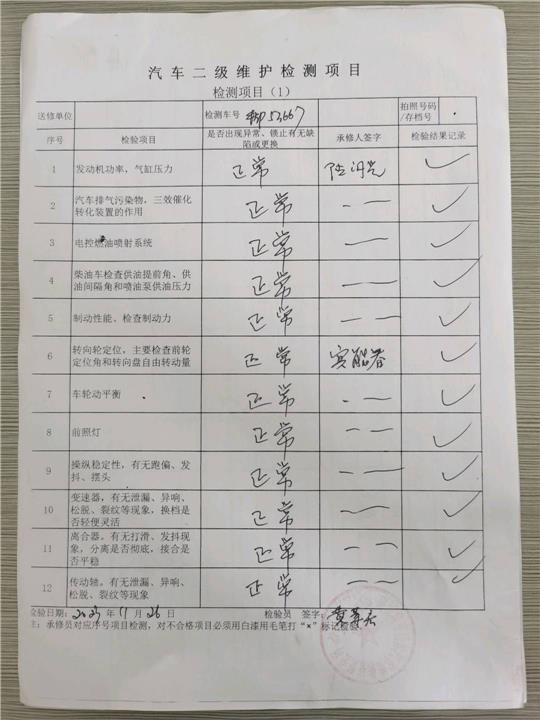 汽车二级维护检测项目
检测项目（1）
送修单位 检测车号 拍照号码/存档号
序号 检验项目 是否出现异常、锁止有无缺陷或更换 承修人签字 检验结果记录
1 发动机功率，气缸压力 正常 ✓
2 汽车排气污染物，三效催化转化装置的作用 正常 ✓
3 电控燃油喷射系统 正常 ✓
4 柴油车检查供油提前角、供油间隔角和喷油泵供油压力 正常 ✓
5 制动性能、检查制动力 正常 ✓
6 转向轮定位，主要检查前轮定位角和转向盘自由转动量 正常 ✓
7 车轮动平衡 正常 ✓
8 前照灯 正常 ✓
9 操纵稳定性，有无跑偏、发抖、摆头 正常 ✓
10 变速器，有无泄漏、异响、松脱、裂纹等现象，换档是否轻便灵活 正常 ✓
11 离合器，有无打滑、发抖现象，分离是否彻底，接合是否平稳 正常 ✓
12 传动轴，有无泄漏、异响、松脱、裂纹等现象 正常 ✓
检验日期： 年 11 月 26 日 检验员 签字：
注：承修员对应序号项目检测，对不合格项目必须用白漆用毛笔打“×”标记检验。